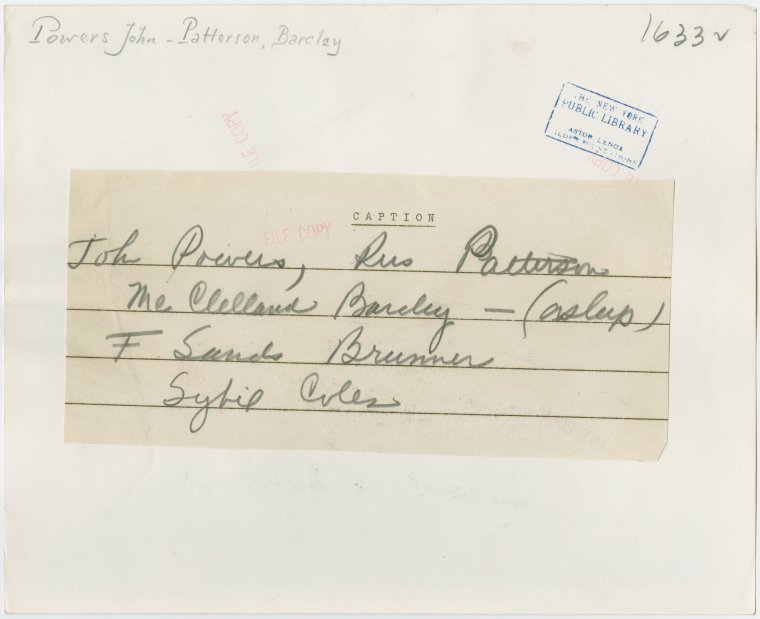 Powers John - Patterson, Barcley
1633v
THE NEW YORK
PUBLIC LIBRARY
ASTOR LENOX
TILDEN FOUNDATIONS
FILE COPY
FILE COPY
COPY
CAPTION
FILE COPY
John Powers, Rus Patterson
McClelland Barcley — (asleep)
F Sands Brunner
Sybil Coles